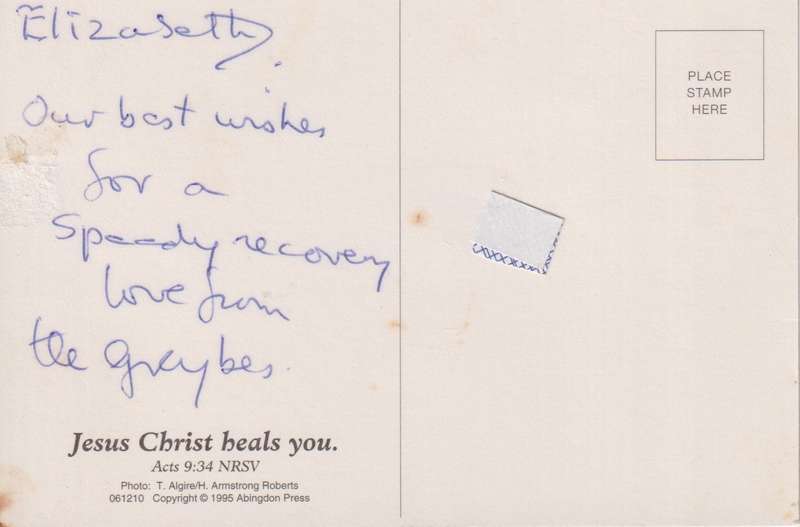 Elizabeth,
Our best wishes
for a
speedy recovery
love from
the Greybes.
Jesus Christ heals you.
Acts 9:34 NRSV
Photo: T. Algire/H. Armstrong Roberts
061210 Copyright © 1995 Abingdon Press
PLACE
STAMP
HERE